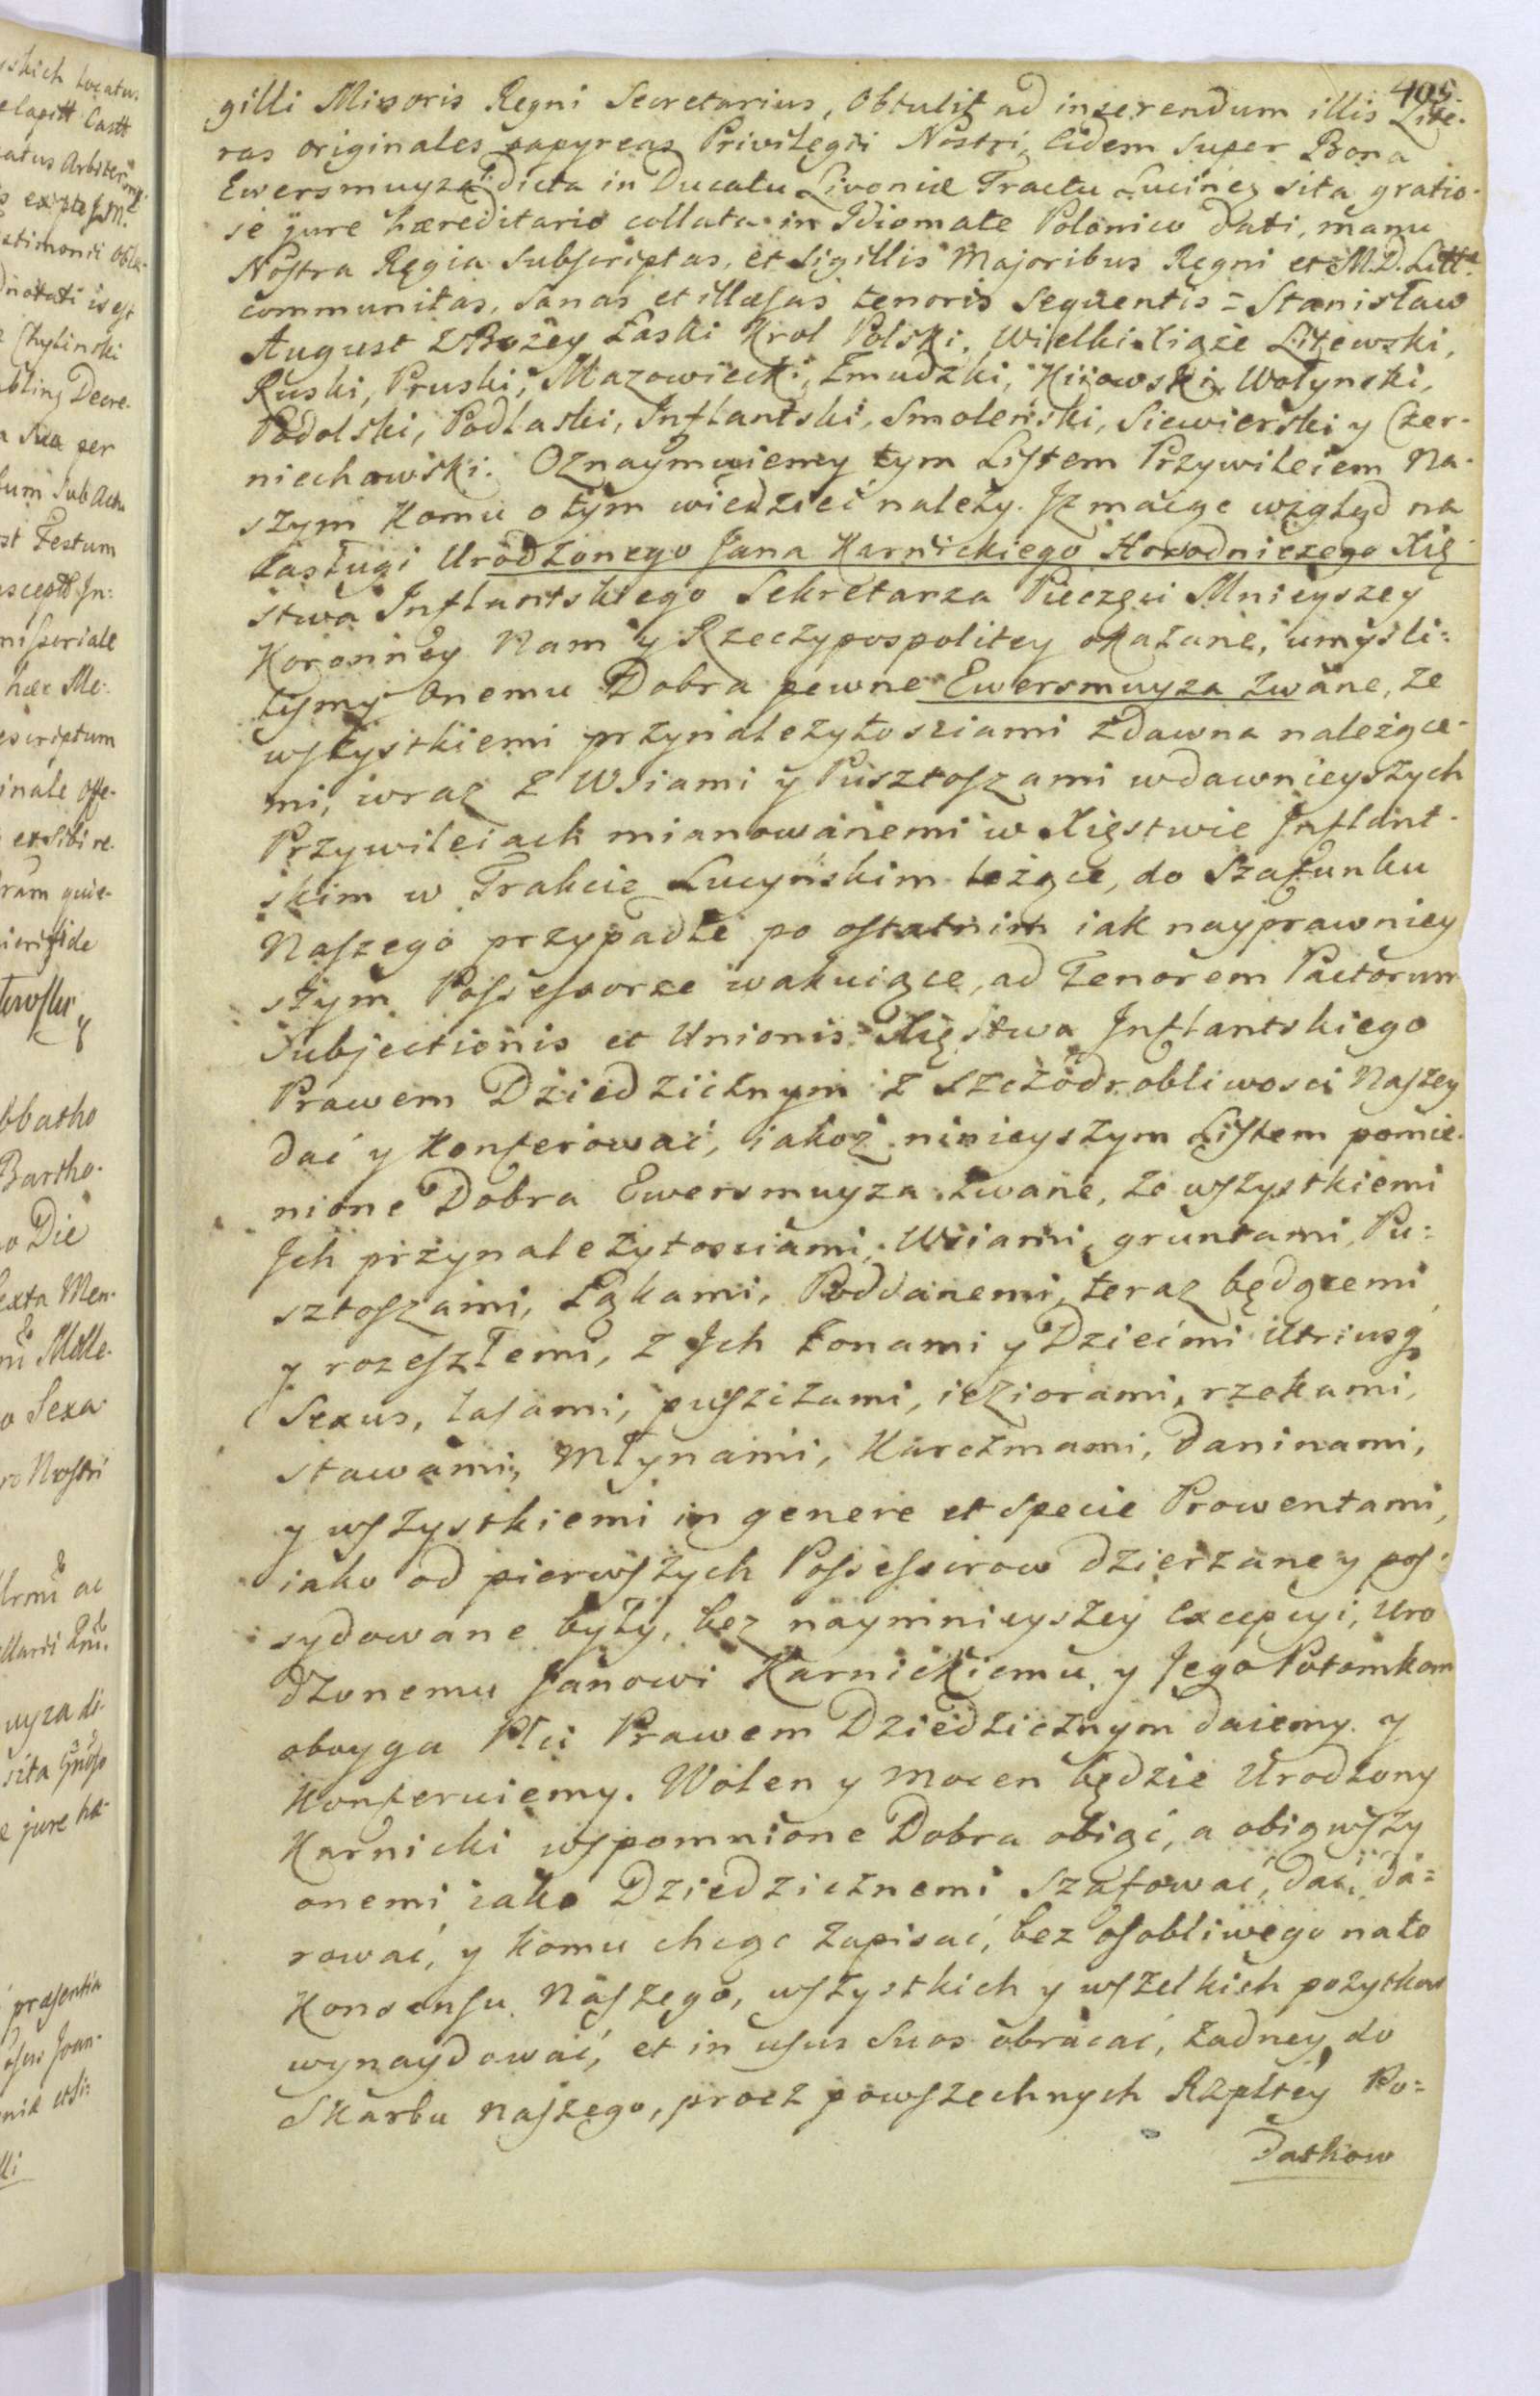 405.
gilli Minoris Regni Secretarius, Obtulit ad inserendum illis Lite-
ras originales papyreas Privilegii Nostri, Eidem Super Bona
Ewersmuyza dicta in Ducatu Livoniæ Tractu Lucinen sita gratio-
se jure hæreditario collata in Idiomate Polonico dati, manu
Nostra Regia Subscriptas, et Sigillis Majoribus Regni et M.D. Litt.
communitas, Sanas et illæsas tenoris Sequentis = Stanisław
August Z Bożey Łaski Krol Polski, Wielki Xiąże Litewski,
Ruski, Pruski, Mazowiecki, Żmudzki, Kiiowski, Wołynski,
Podolski, Podlaski, Inflantski, Smoleński, Siewierski y Czer-
niechowski. Oznaymuiemy tym Listem Przywileiem Na-
szym Komu o tym wiedzieć należy. Iż maiąc wzgląd na
Zasługi Urodzonego Jana Karnickiego Horodniczego Xię-
stwa Inflantskiego Sekretarza Pieczęci Mnieyszey
Koronney Nam y Rzeczypospolitey okazane, umyśli-
lismy Onemu Dobra pewne Ewersmuyza zwane, ze
wszystkiemi przynależytosciami zdawna należące-
mi, wraz z Wsiami y Pusztoszami w dawnieyszych
Przywileiach mianowanemi w Xięstwie Inflant-
skim w Trakcie Lucyńskim leżące, do Szafunku
Naszego przypadłe po ostatnim iak nayprawniey
szym Possessorze wakuiące, ad Tenorem Pactorum
Subjectionis et Unionis Xięstwa Inflantskiego
Prawem Dziedzicznym z szczodrobliwosci Naszey
dać y Konferować, iakoż ninieyszym Listem pomie-
nione Dobra Ewersmuyza zwane, ze wszystkiemi
Ich przynależytosciami, Wsiami, gruntami, Pu=
sztoszami, Łąkami, Poddanemi, teraz będącemi
y rozeszłemi, z Ich Żonami y Dziećmi Utriusq
Sexus, lasami, puszczami, ieziorami, rzekami,
stawami, Młynami, Karczmami, daninami,
y wszystkiemi in genere et specie Prowentami,
iako od pierwszych Possessorow dzierzane y pos-
sydowane były, bez naymnieyszey Excepcyi, Uro
dzonemu Janowi Karnickiemu, y Jego Potomkom
oboyga Płci Prawem Dziedzicznym daiemy y
Konferuiemy. Wolen y mocen będzie Urodzony
Karnicki wspomnione Dobra obiąć, a obiąwszy
onemi iako Dziedzicznemi Szafować, dać, da=
rować, y komu chcąc zapisać, bez osobliwego nato
Konsensu Naszego, wszystkich y wszelkich pożytkow
wynaydować, et in usus Suos obracać, żadney do
Skarbu Naszego, procz powszechnych Rzpltey Po=
datkow